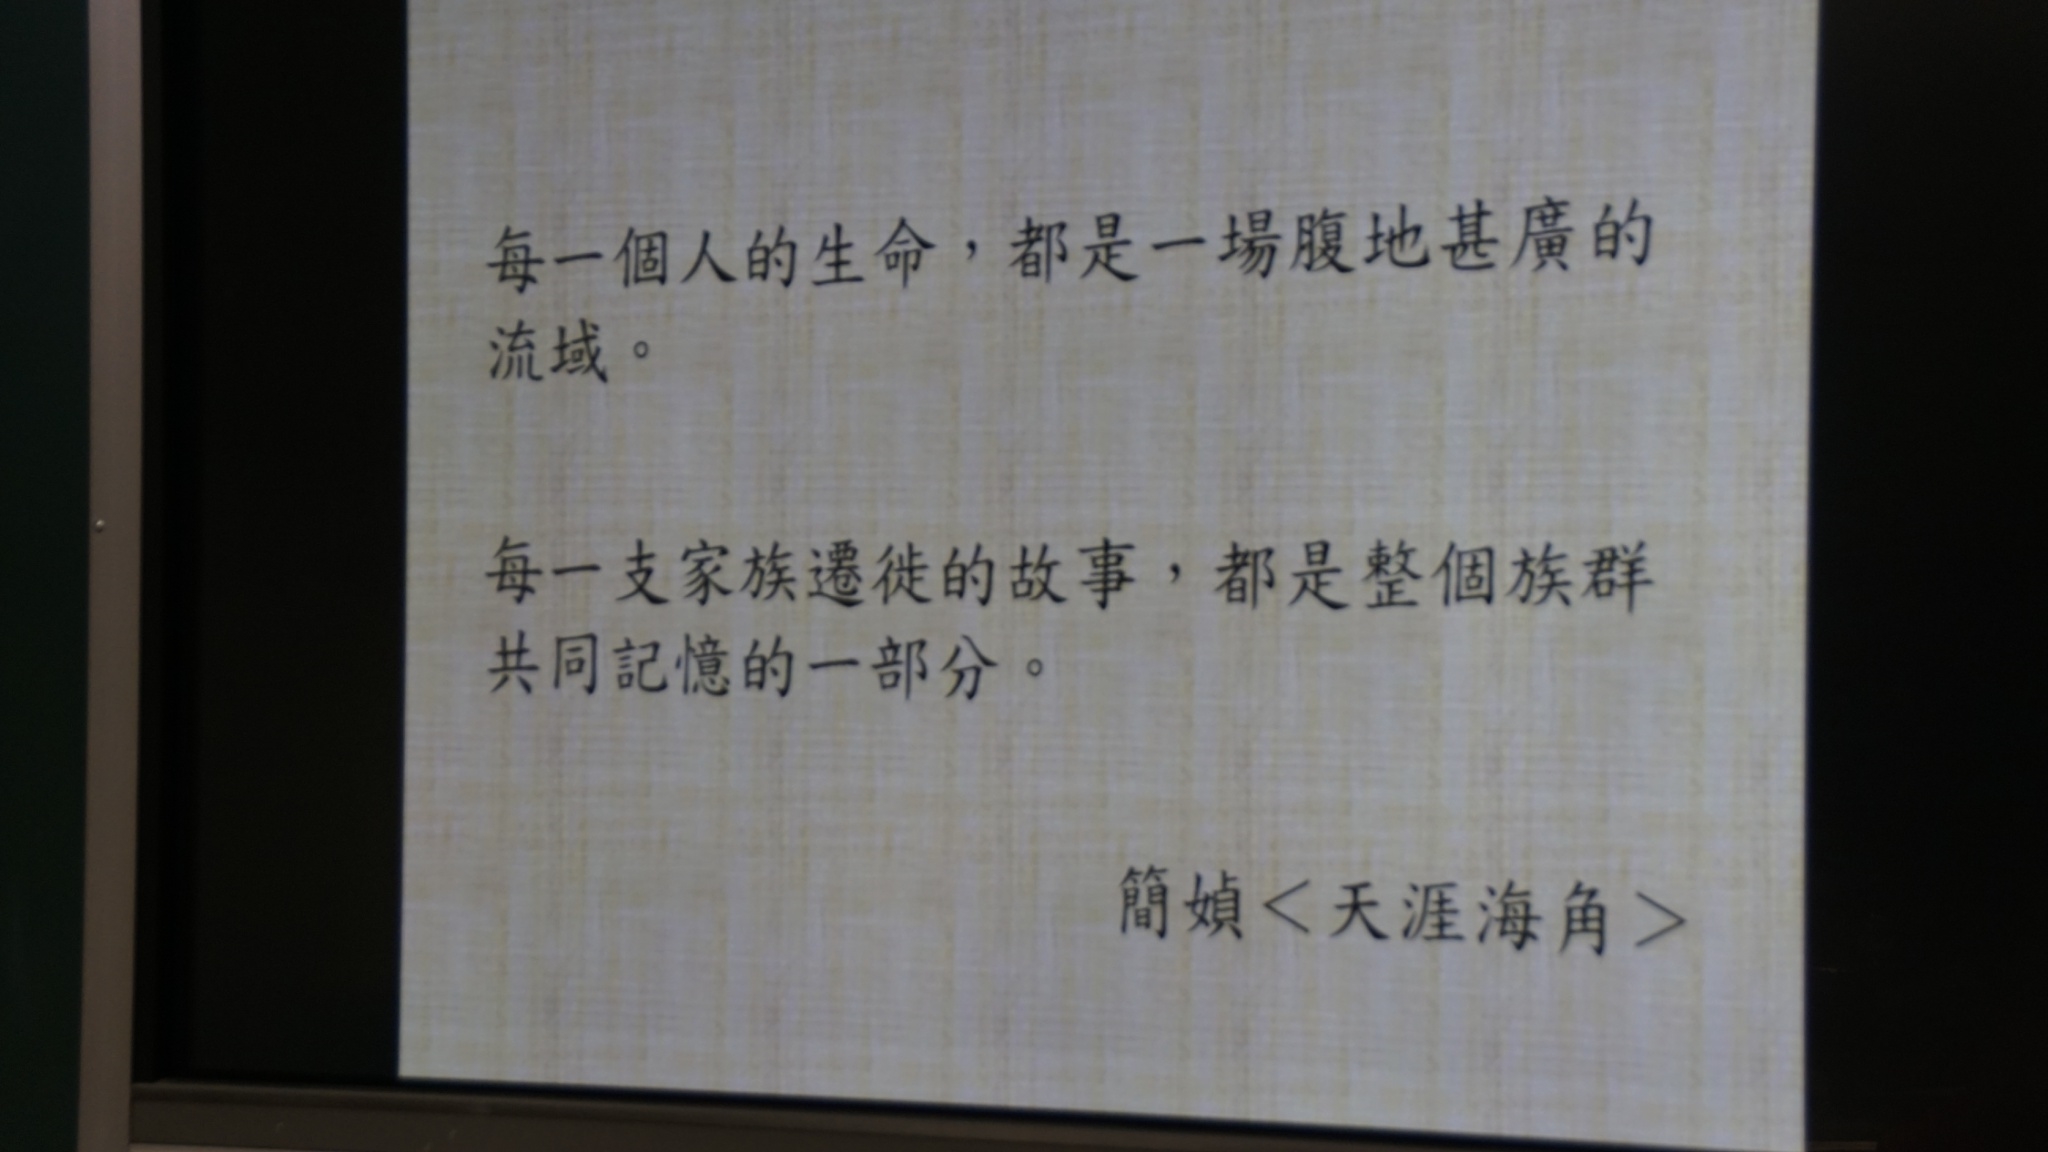 每一個人的生命，都是一場腹地甚廣的
流域。
每一支家族遷徙的故事，都是整個族群
共同記憶的一部分。
簡媜＜天涯海角＞